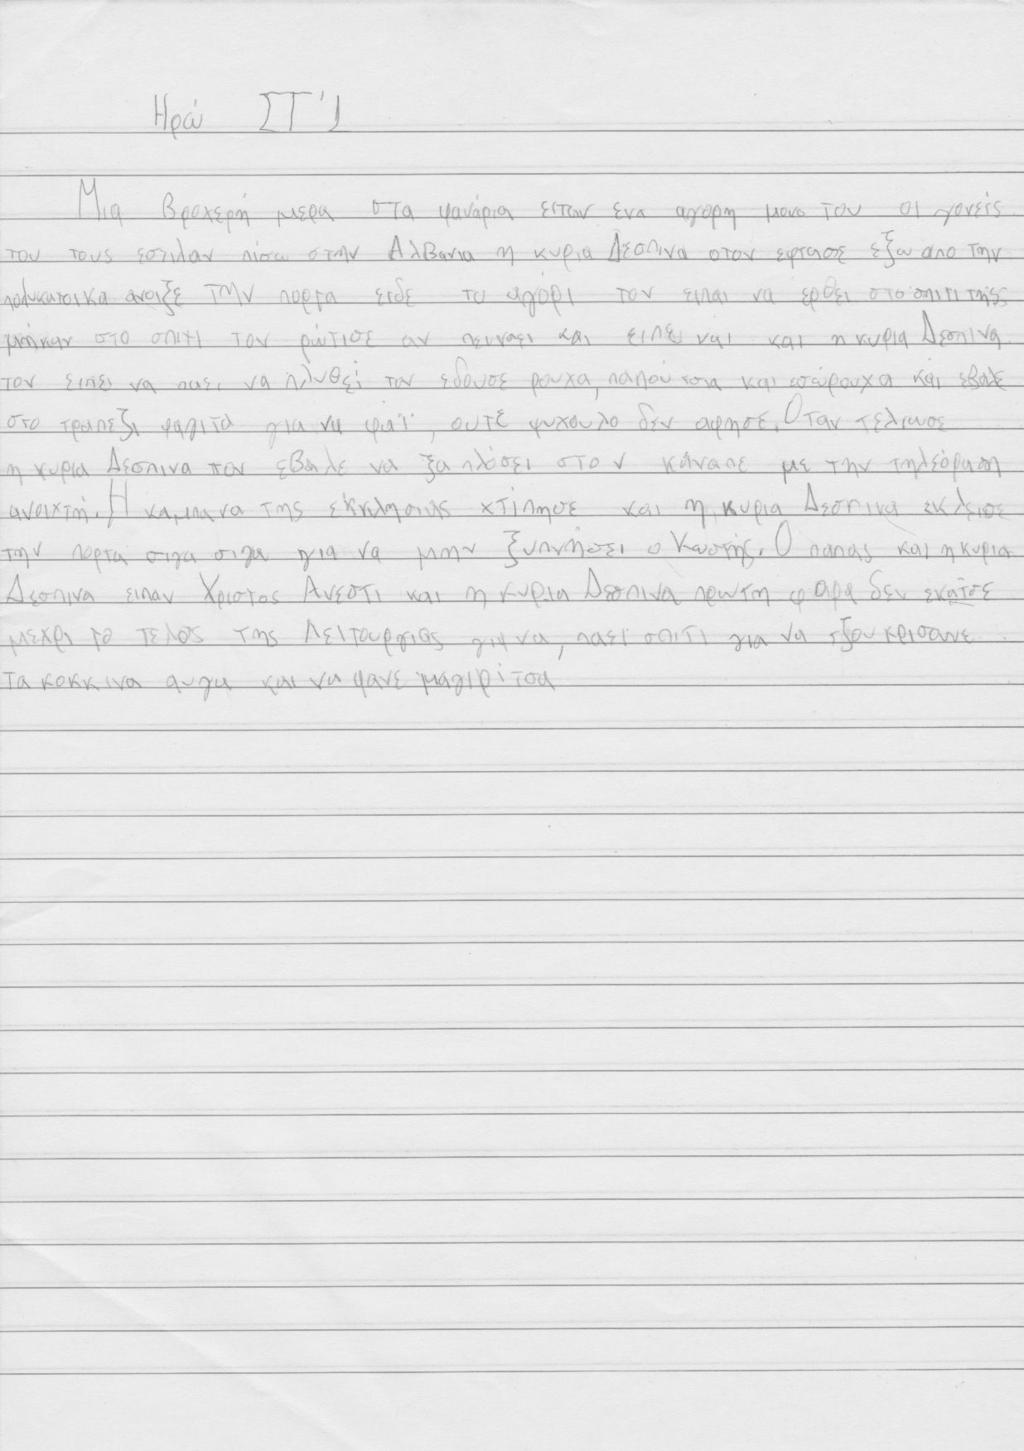 Ηρώ ΣΤ'1
Μια βροχερή μερα στα φανάρια ειταν ενα αγορη μονο του οι γονείς
του τους εστιλαν πίσω στην Αλβανια η κυρια Δεσπινα οταν εφτασε έξω απο την
πολυκατοικα ανοιξε την πορτα ειδε το αγόρι τον ειπαι να ερθει στο σπιτι της
μπήκαν στο σπιτι τον ρώτισε αν πειναει και ειπε ναι και η κυρια Δεσπινα
τον ειπε να παει να πλυθεί τον εδωσε ρουχα, παπούτσια και εσώρουχα και έβαλε
στο τραπεζι φαγιτά για να φάϊ, ουτε ψυχουλο δεν αφησε. Οταν τελιωσε
η κυρια Δεσπινα τον έβαλε να ξαπλόσει στον κάναπε με την τηλεόραση
ανοιχτή. Η καμπανα της εκκλησιας χτίπησε και η κυρια Δεσπινα εκλεισε
την πορτα σιγα σιγα για να μην ξυπνήσει ο Κωστής. Ο παπας και η κυρια
Δεσπινα ειπαν Χριστος Ανεστι και η κυρια Δεσπινα πρωτη φορα δεν εκατσε
μεχρι το τελος της Λειτουργιας για να παει σπιτι για να τζουκρισανε
τα κοκκινα αυγα και να φανε μαγιρίτσα